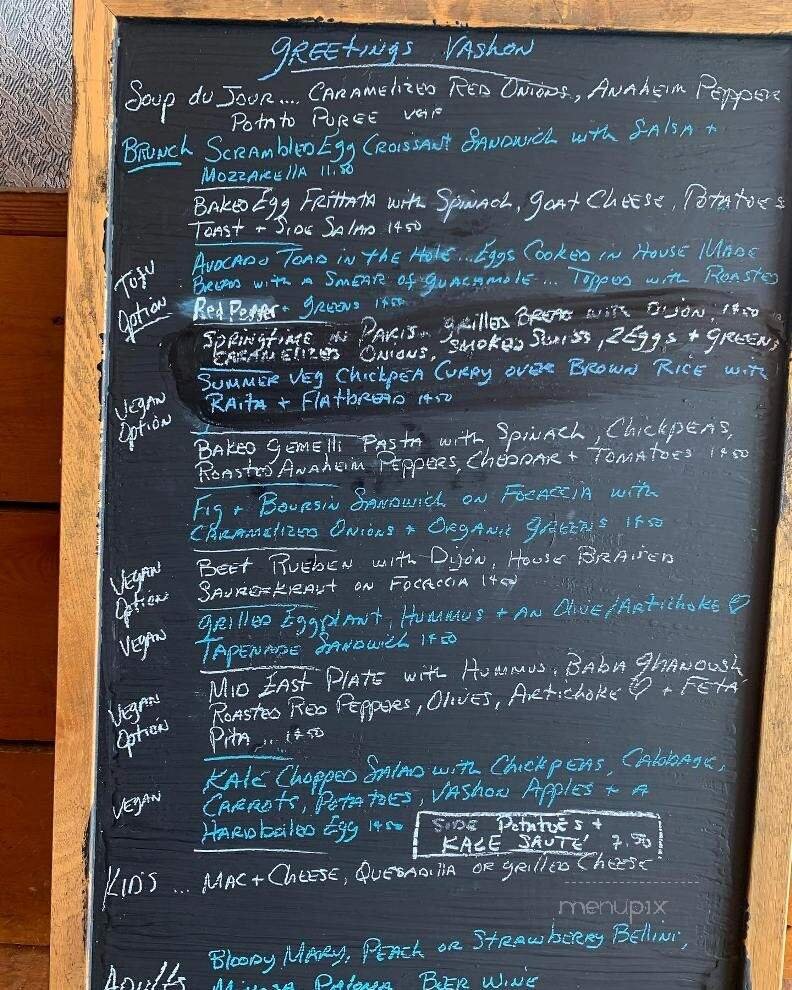 GREETINGS VASHON
SOUP DU JOUR.... CARAMELIZED RED ONIONS, ANAHEIM PEPPER
POTATO PUREE VGF
BRUNCH SCRAMBLED EGG CROISSANT SANDWICH WITH SALSA +
MOZZARELLA 11.50
BAKED EGG FRITTATA WITH SPINACH, GOAT CHEESE, POTATOES
TOAST + SIDE SALAD 1450
AVOCADO TOAD IN THE HOLE... EGGS COOKED IN HOUSE MADE
TOFU OPTION
BREAD WITH A SMEAR OF GUACAMOLE... TOPPED WITH ROASTED
Red Pepper + GREENS 1450
SPRINGTIME IN PARIS. GRILLED BREAD WITH DIJON, 1450
CARAMELIZED ONIONS, SMOKED SWISS, 2 EGGS + GREENS
SUMMER VEG CHICKPEA CURRY OVER BROWN RICE WITH
VEGAN OPTION
RAITA + FLATBREAD 1450
BAKED GEMELLI PASTA WITH SPINACH, CHICKPEAS,
ROASTED ANAHEIM PEPPERS, CHEDDAR + TOMATOES 1450
FIG + BOURSIN SANDWICH ON FOCACCIA WITH
CARAMELIZED ONIONS + ORGANIC GREENS 1450
VEGAN OPTION
BEET RUEBEN WITH DIJON, HOUSE BRAISED
SAUREKRAUT ON FOCACCIA 1450
GRILLED EGGPLANT, HUMMUS + AN OLIVE/ARTICHOKE ♡
VEGAN
TAPENADE SANDWICH 1450
MID EAST PLATE WITH HUMMUS, BABA GHANOUSH
VEGAN OPTION
ROASTED RED PEPPERS, OLIVES, ARTICHOKE ♡ + FETA
PITA... 1450
KALE CHOPPED SALAD WITH CHICKPEAS, CABBAGE,
VEGAN
CARROTS, POTATOES, VASHON APPLES + A
HARDBOILED EGG 1450
SIDE POTATOES +
KALE SAUTÉ 7.50
KIDS ... MAC + CHEESE, QUESADILLA OR GRILLED CHEESE
menupix
BLOODY MARY, PEACH OR STRAWBERRY BELLINI,
ADULTS MIMOSA PALOMA BEER WINE